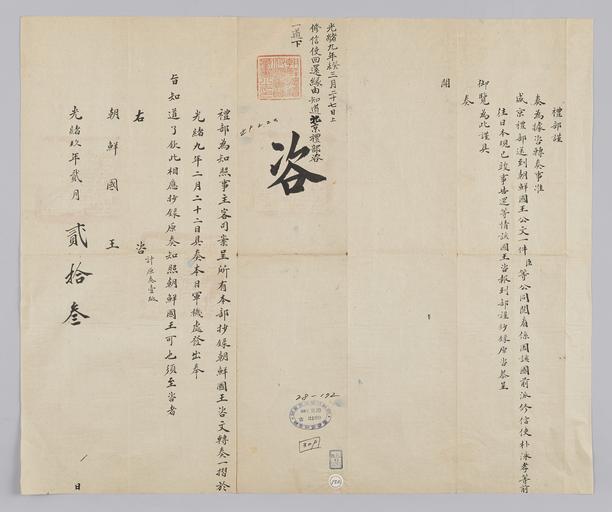 禮部謹
奏為據咨轉奏事准
盛京禮部送到朝鮮國王公文一件臣等公同閱看係因該國前派修信使朴泳孝等前
往日本現已竣事告還等情該國王咨報到部謹抄錄原咨恭呈
御覽為此謹具
奏
聞
光緒九年癸三月二十七日上
修信使回還緣由知道北京禮部咨
一道下
咨
禮部為知照事主客司案呈所有本部抄錄朝鮮國王咨文轉奏一摺於
光緒九年二月二十二日具奏本日軍機處發出奉
旨知道了欽此相應抄錄原奏知照朝鮮國王可也須至咨者
計原奏壹紙
右咨
朝鮮國王
光緒玖年貳月貳拾叁日
28-192